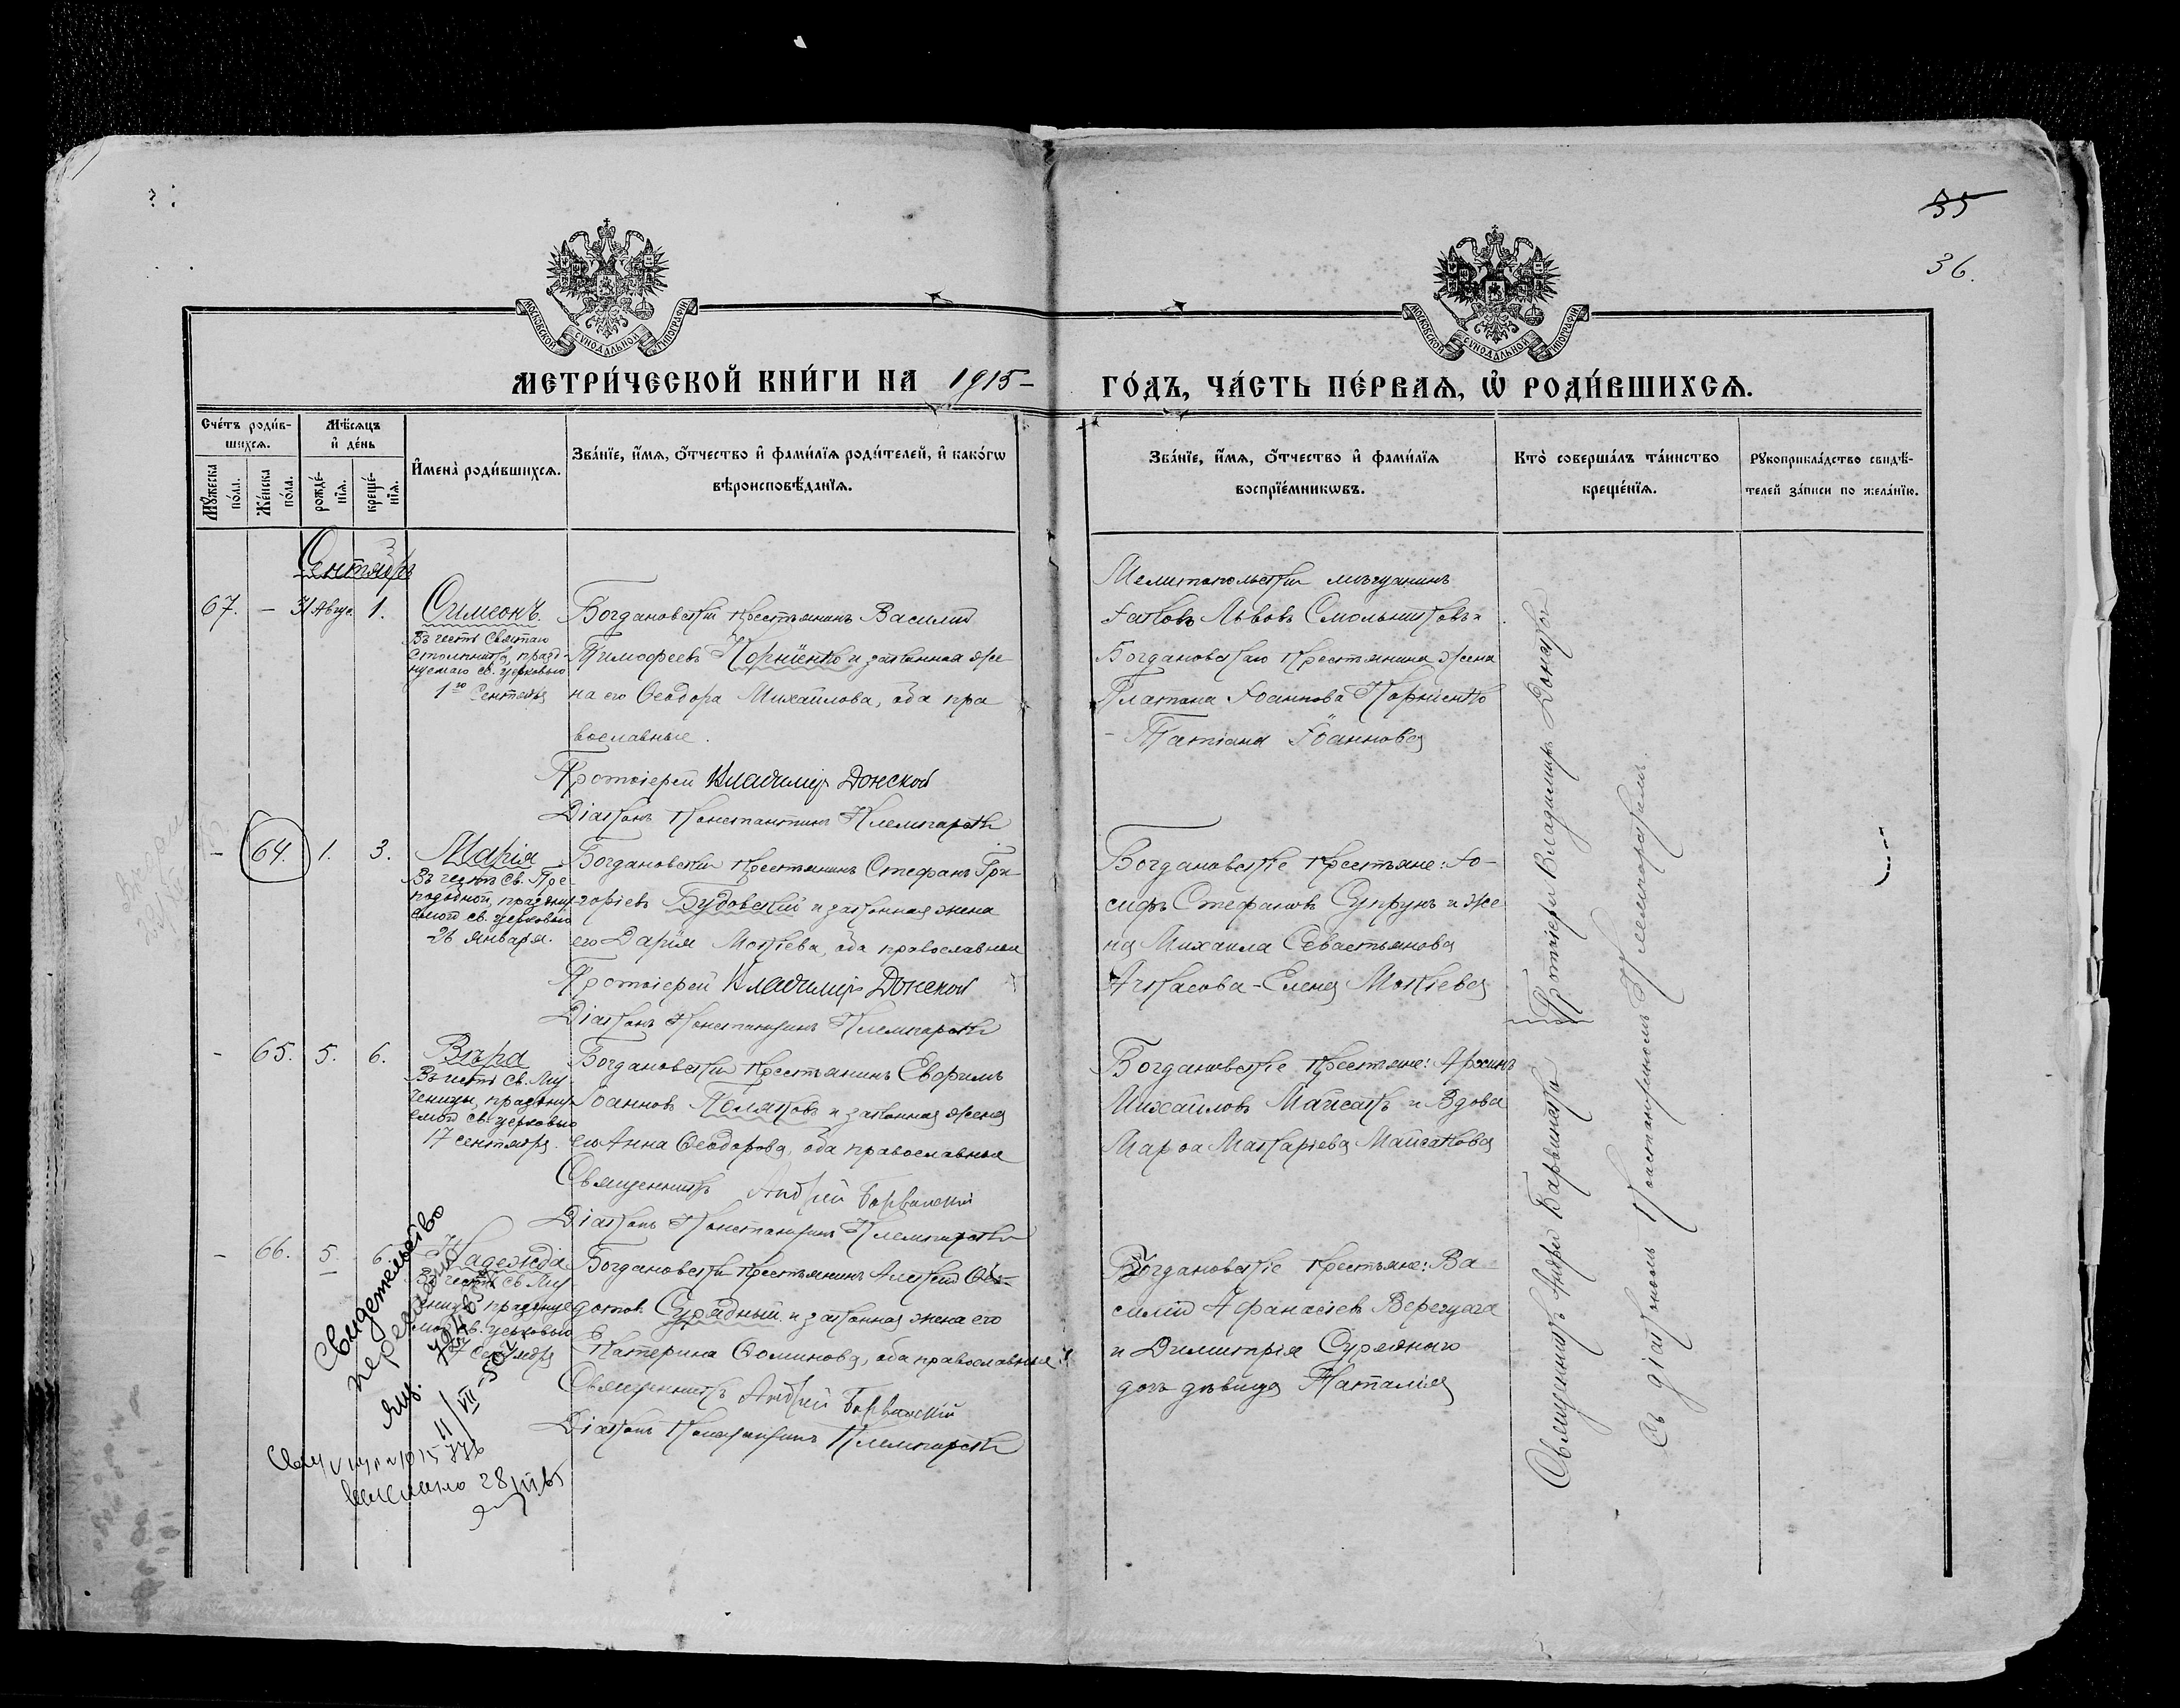 35
36.
МОСКОВСКОЙ СѴНОДАЛЬНОЙ ТИПОГРАФІИ
МОСКОВСКОЙ СѴНОДАЛЬНОЙ ТИПОГРАФІИ
МЕТРИ́ЧЕСКОЙ КНИ́ГИ НА 1915 – ГО́ДЪ, ЧА́СТЬ ПЕ́РВАѦ, Ѽ РОДИ́ВШИХСѦ.
Сче́тъ роди́в-
шихсѧ.
Мꙋжеска
по́ла.
Же́нска
по́ла.
Мѣ́сѧцъ
и҆ де́нь
рожде́-
нїѧ.
креще́-
нїѧ.
И҆мена̀ роди́вшихсѧ.
Зва́нїе, и҆́мѧ, ѻ҆́тчество и҆ фами́лїѧ роди́телей, и҆ како́гѡ
вѣроисповѣ́данїѧ.
Зва́нїе, и҆́мѧ, ѻ҆́тчество и҆ фами́лїѧ
воспрїе́мникѡвъ.
Кто̀ соверша́лъ та́инство
креще́нїѧ.
Рꙋкоприкла́дство свидѣ́-
телей за́писи по жела́нїю.
Сентябрь
67. – 31 Авгус. 1.
Симеонъ.
Въ честь Святаго
Столпника, празд-
нуемаго св. церковью
1го Сентября
Богдановскій крестьянинъ Василій
Тимофеевъ Корніенко и законная же
на его Ѳеодора Михайлова, оба пра
вославные.
Протоіерей Владиміръ Донской
Діаконъ Константинъ
Мелитопольскій мѣщанинъ
Іаковъ Львовъ Смольниковъ и
Богдановскаго крестьянина жена
Платона Іоаннова Корніенко
– Татіана Іоаннова
– 64. 1. 3.
Марія
Въ честь Св. Пре-
подобной, праздну-
емой св. церковью
26 января.
Богдановскій крестьянинъ Стефанъ Гри-
горіевъ Будовскій и законная жена
его Дарія Мокіева, оба православные
Протоіерей Владиміръ Донской
Діаконъ Константинъ
Богдановскіе крестьяне: Іо-
сифъ Стефановъ Супрунъ и же
на Михаила Севастьянова
Ачкасова – Елена Мокіева
– 65. 5. 6.
Вѣра
Въ честь Св. Му-
ченицы, праздну-
емой св. церковью
17 сентября.
Богдановскій крестьянинъ Евфимъ
Іоанновъ Поляковъ и законная жена
его Анна Ѳеодорова, оба православные
Священникъ Андрей Барвинскій
Діаконъ Константинъ
Богдановскіе крестьяне: Архипъ
Михайловъ Майсакъ и Вдова
Марѳа Макаріева Майсакова
– 66. 5. 6.
Надежда
Въ честь Св. Му
ченицы празднуе
мой св. церковью
17 Сентября
Богдановскій крестьянинъ Алексій Ѳе-
дотов. Сурядный и законная жена его
Катерина Ѳоминова, оба православные
Священникъ Андрей Барвинскій
Діаконъ Константинъ
Богдановскіе крестьяне: Ва
силій Афанасіевъ Верещага
и Димитрія Суряднаго
дочь дѣвица Наталія
Протоіерей Владиміръ Донской
Священникъ Андрей Барвинскій
Съ діакономъ Константиномъ
Свидетельство
11/VII-50
выслано 28